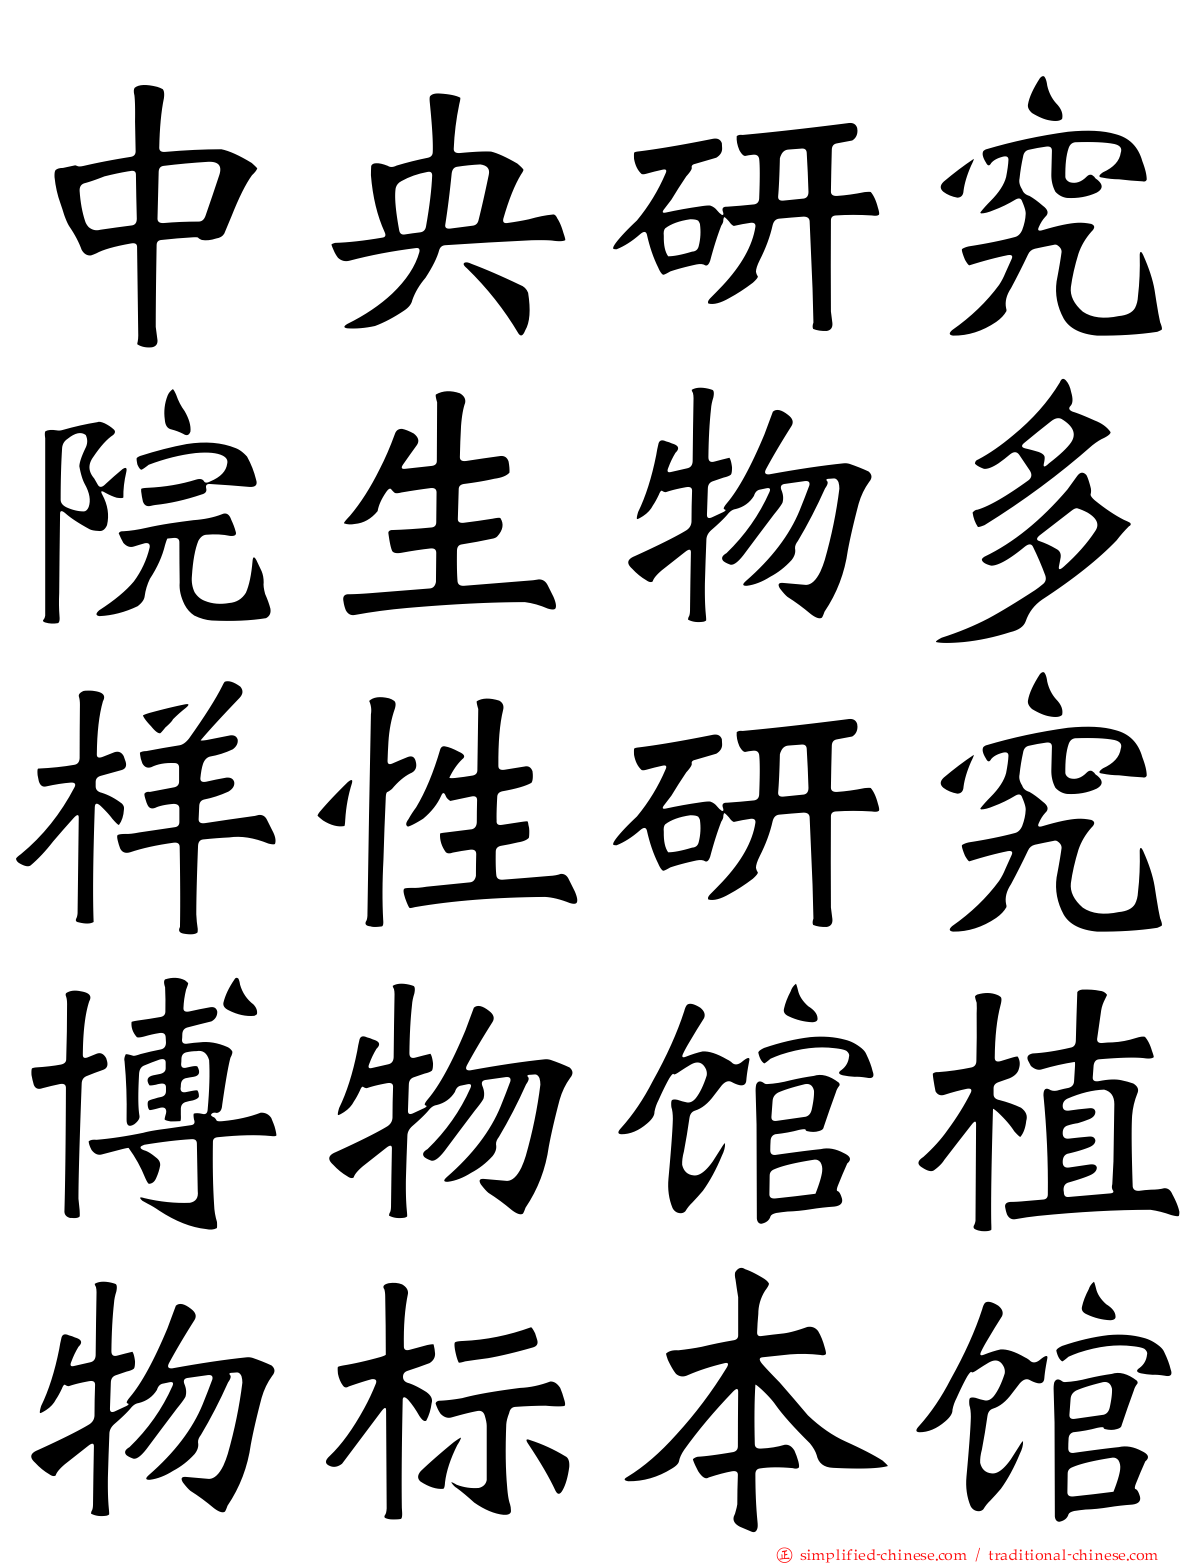 中央研究
院生物多
样性研究
博物馆植
物标本馆
㊣ simplified-chinese.com / traditional-chinese.com